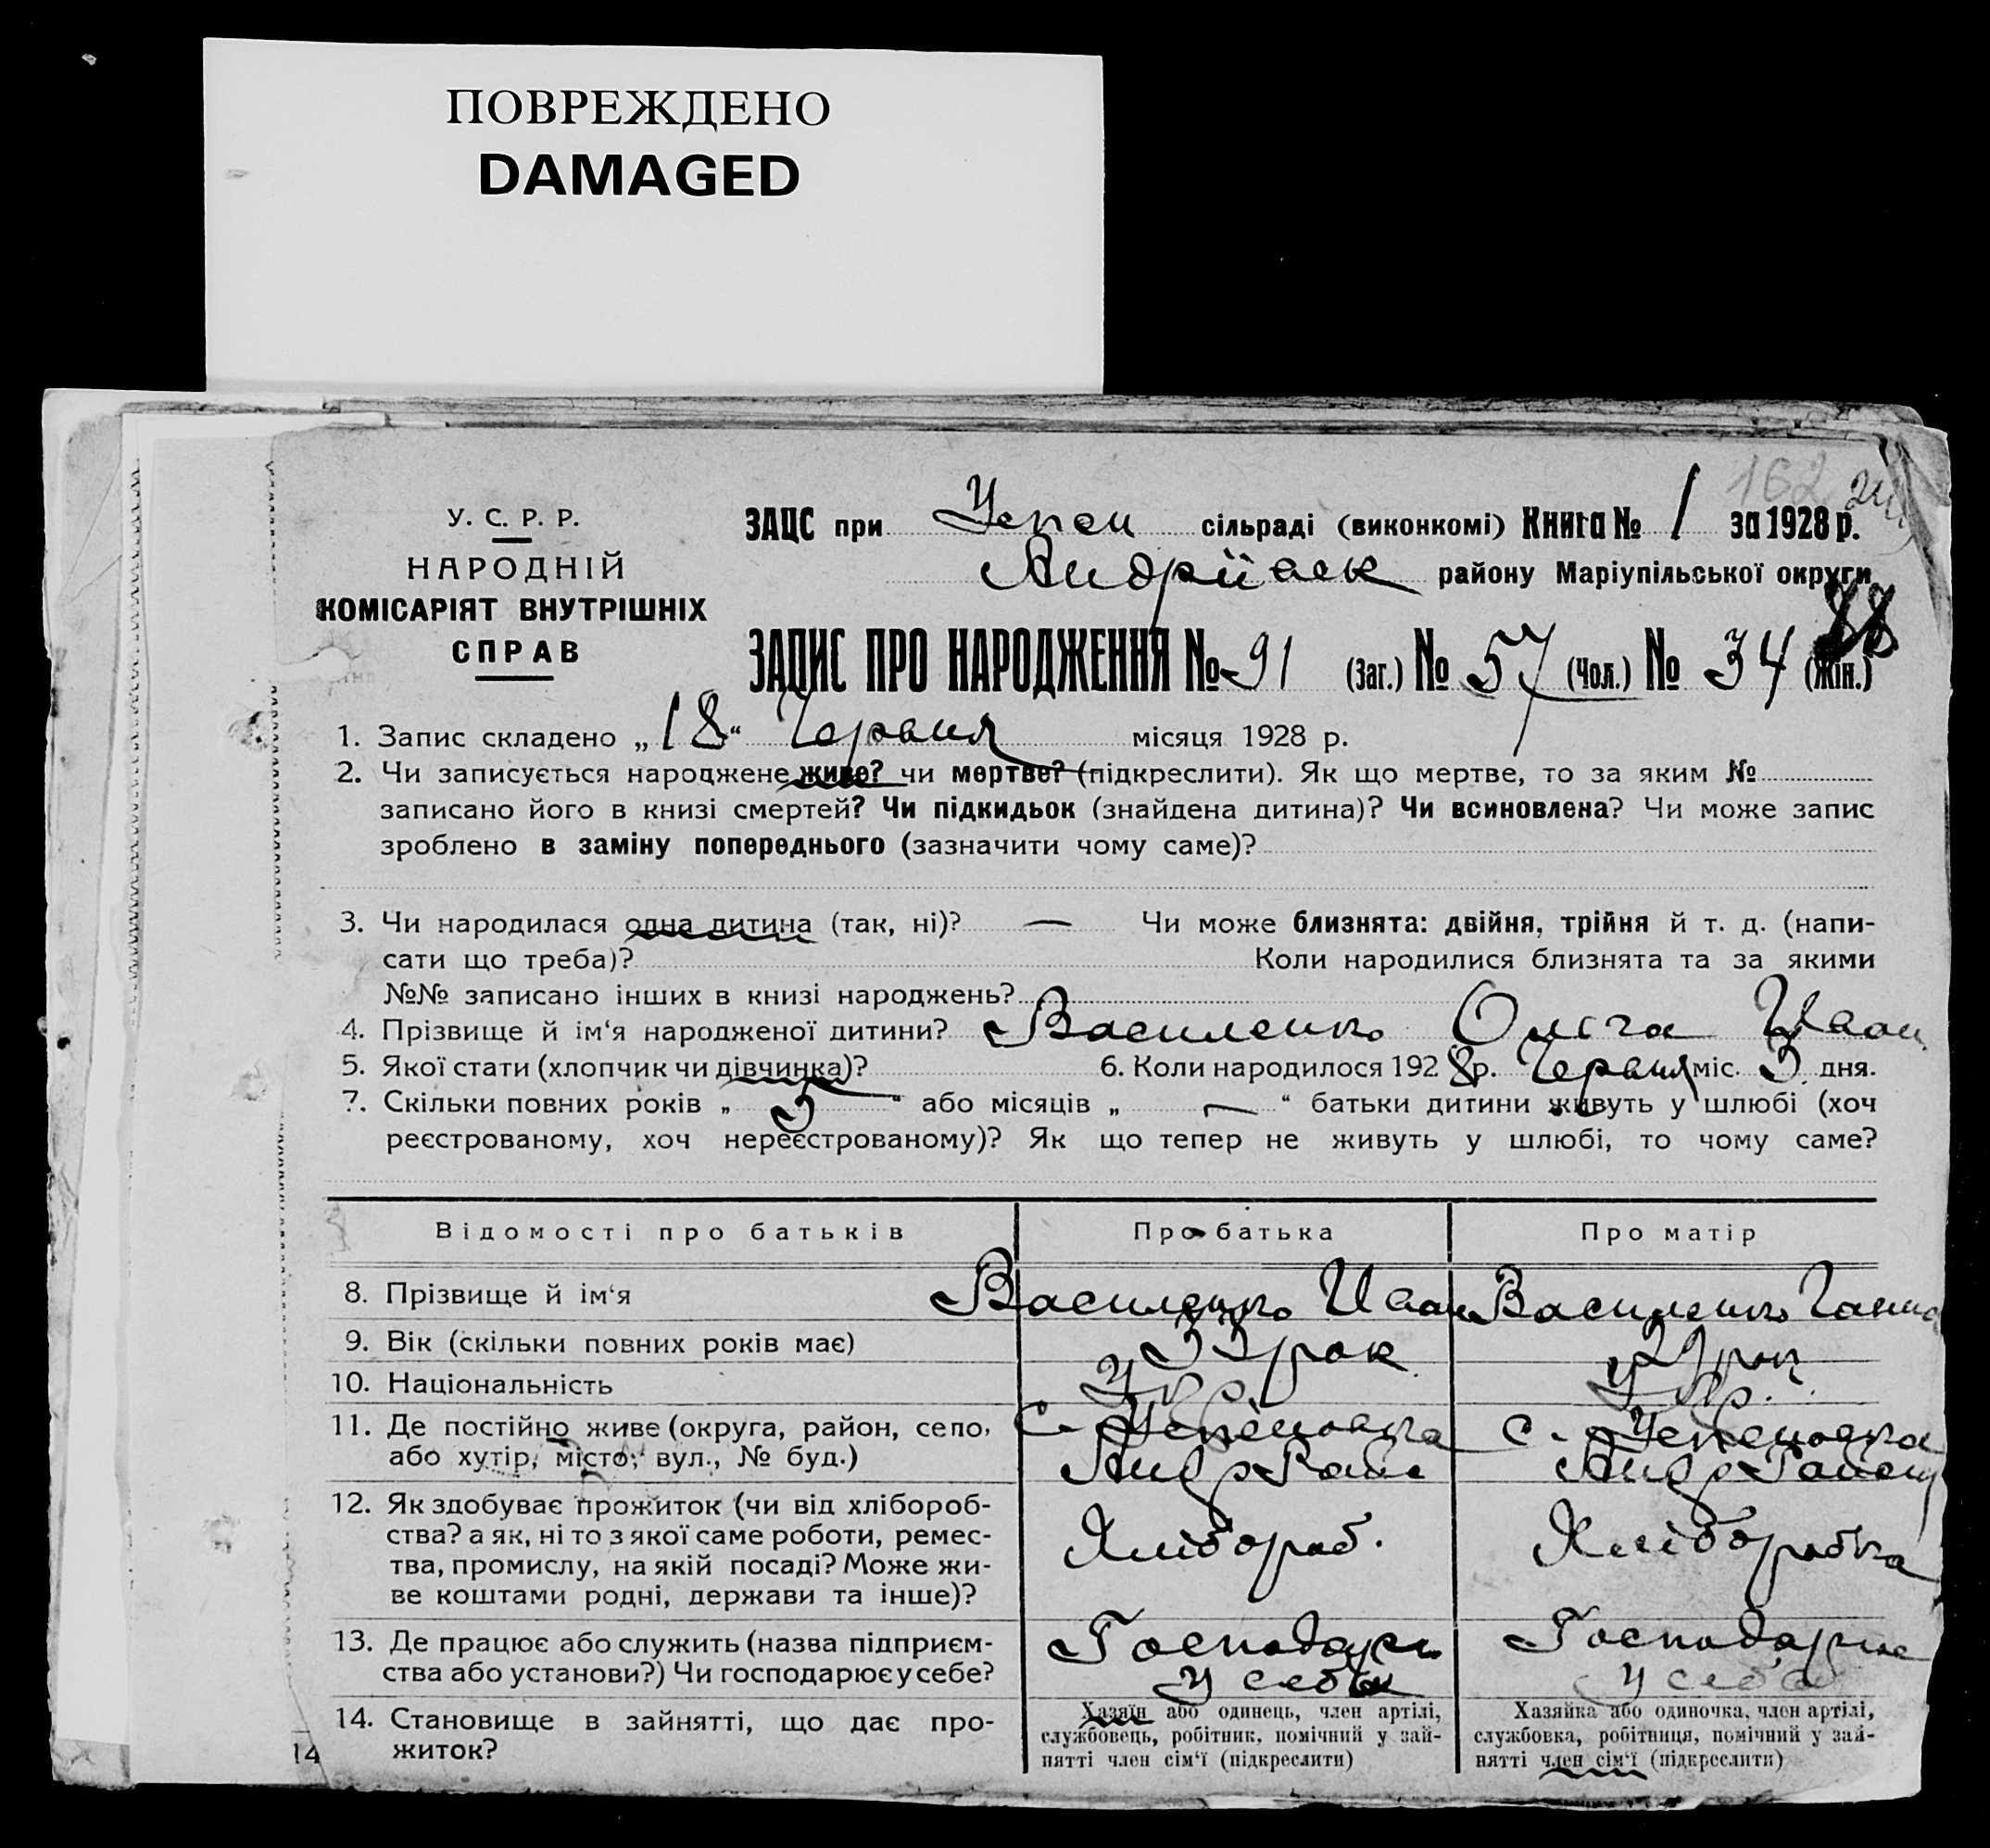 ПОВРЕЖДЕНО
DAMAGED
162
У. С. Р. Р.
НАРОДНІЙ
КОМІСАРІЯТ ВНУТРІШНІХ
СПРАВ
ЗАЦС при Успен сільраді (виконкомі) Книга № 1 за 1928 р.
Андріївск району Маріупільської округи
88
ЗАПИС ПРО НАРОДЖЕННЯ № 91 (Заг.) № 57 (Чол.) № 34 (Жін.)
1. Запис складено „18“ Червня місяця 1928 р.
2. Чи записується народжене живе? чи мертве? (підкреслити). Як що мертве, то за яким №
записано його в книзі смертей? Чи підкидьок (знайдена дитина)? Чи всиновлена? Чи може запис
зроблено в заміну попереднього (зазначити чому саме)?
3. Чи народилася одна дитина (так, ні)? — Чи може близнята: двійня, трійня й т. д. (напи-
сати що треба)? Коли народилися близнята та за якими
№№ записано інших в книзі народжень?
4. Прізвище й ім‘я народженої дитини? Василенко Ольга Иван
5. Якої стати (хлопчик чи дівчинка)? 6. Коли народилося 1928 р. Червня міс. 3 дня.
7. Скільки повних років „ 5 “ або місяців „ — “ батьки дитини живуть у шлюбі (хоч
реєстрованому, хоч нереєстрованому)? Як що тепер не живуть у шлюбі, то чому саме?
Відомості про батьків Про батька Про матір
8. Прізвище й ім‘я Василенко Иван Василенко Ганна
9. Вік (скільки повних років має) 33 рок
10. Національність Укр. Укр.
11. Де постійно живе (округа, район, село, с. Успеновка с. Успеновка
або хутір, місто, вул., № буд.) Андр Райо Андр Району
12. Як здобуває прожиток (чи від хлібороб-
ства? а як, ні то з якої саме роботи, ремес- Хлібороб. Хліборобка
тва, промислу, на якій посаді? Може жи-
ве коштами родні, держави та інше)?
13. Де працює або служить (назва підприєм- Господарь Господарює
ства або установи?) Чи господарює у себе? у себе у себе
14. Становище в зайнятті, що дає про-
житок?
Хазяїн або одинець, член артілі,
службовець, робітник, помічний у зай-
нятті член сім‘ї (підкреслити)
Хазяйка або одиночка, член артілі,
службовка, робітниця, помічний у зай-
нятті член сім‘ї (підкреслити)
14